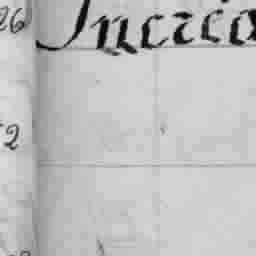 26
Increa
2